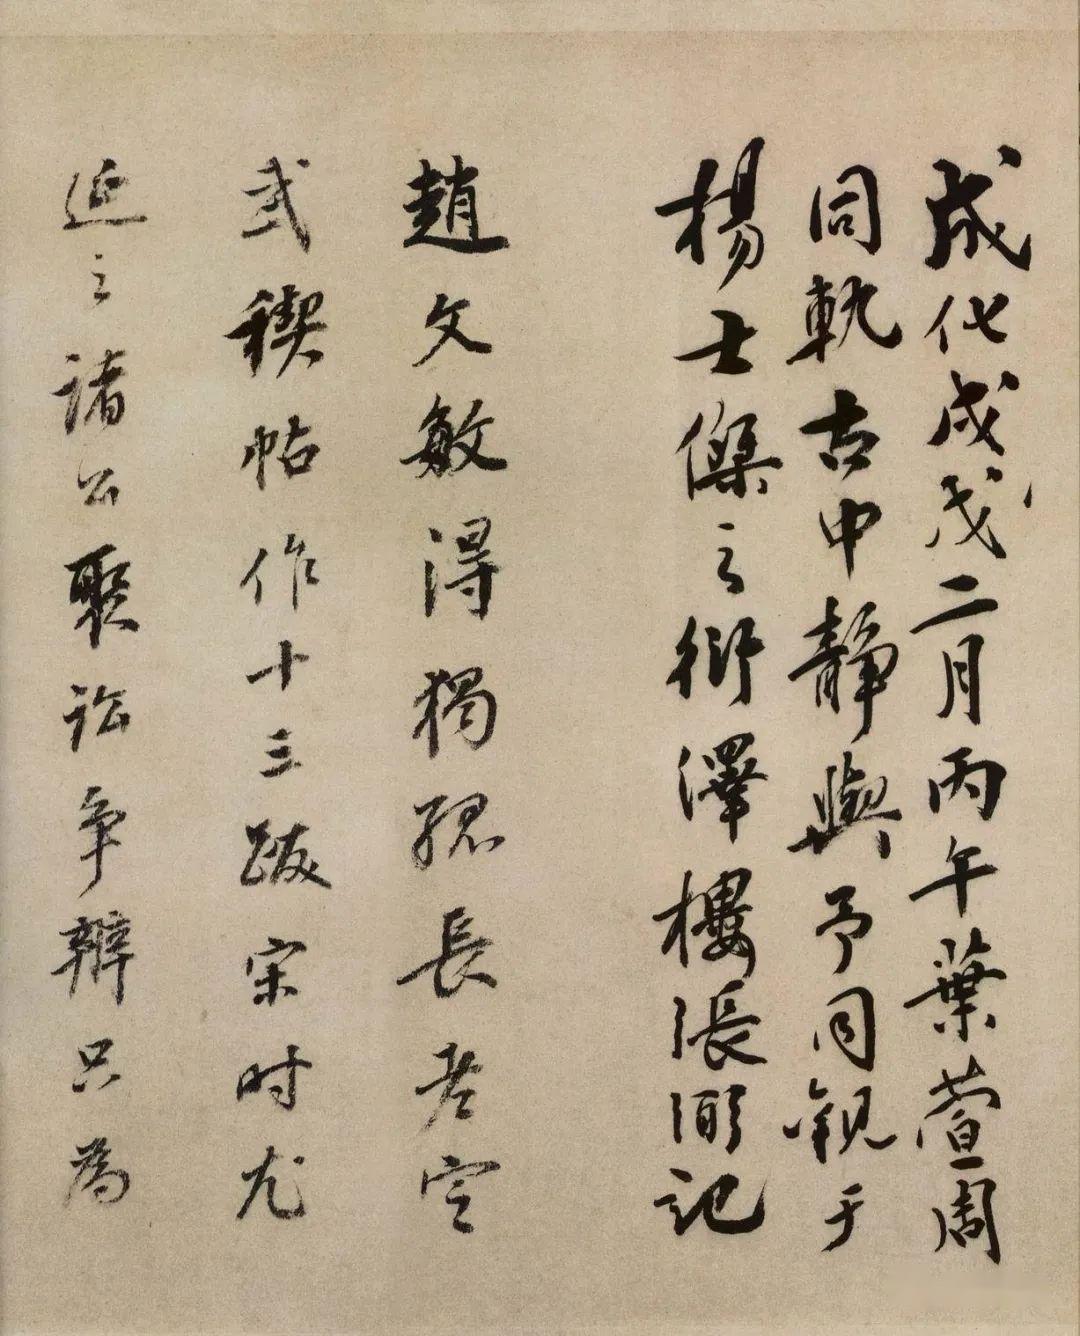 成化戊戌二月丙午葉萱周
同軌古中靜與予同觀于
楊士傑之衍澤樓張弼記
趙文敏得獨孤長老定
武禊帖作十三跋宋时尤
延之諸公聚訟争辨只為